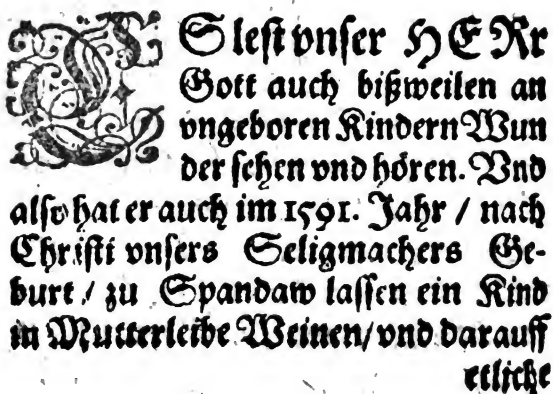 ES lest vnser HERr
Gott auch bißweilen an
vngeboren Kindern Wun
der sehen vnd hören. Vnd
also hat er auch im 1591. Jahr / nach
Christi vnsers Seligmachers Ge-
burt / zu Spandaw lassen ein Kind
in Mutterleibe Weinen / vnd darauff
etliche